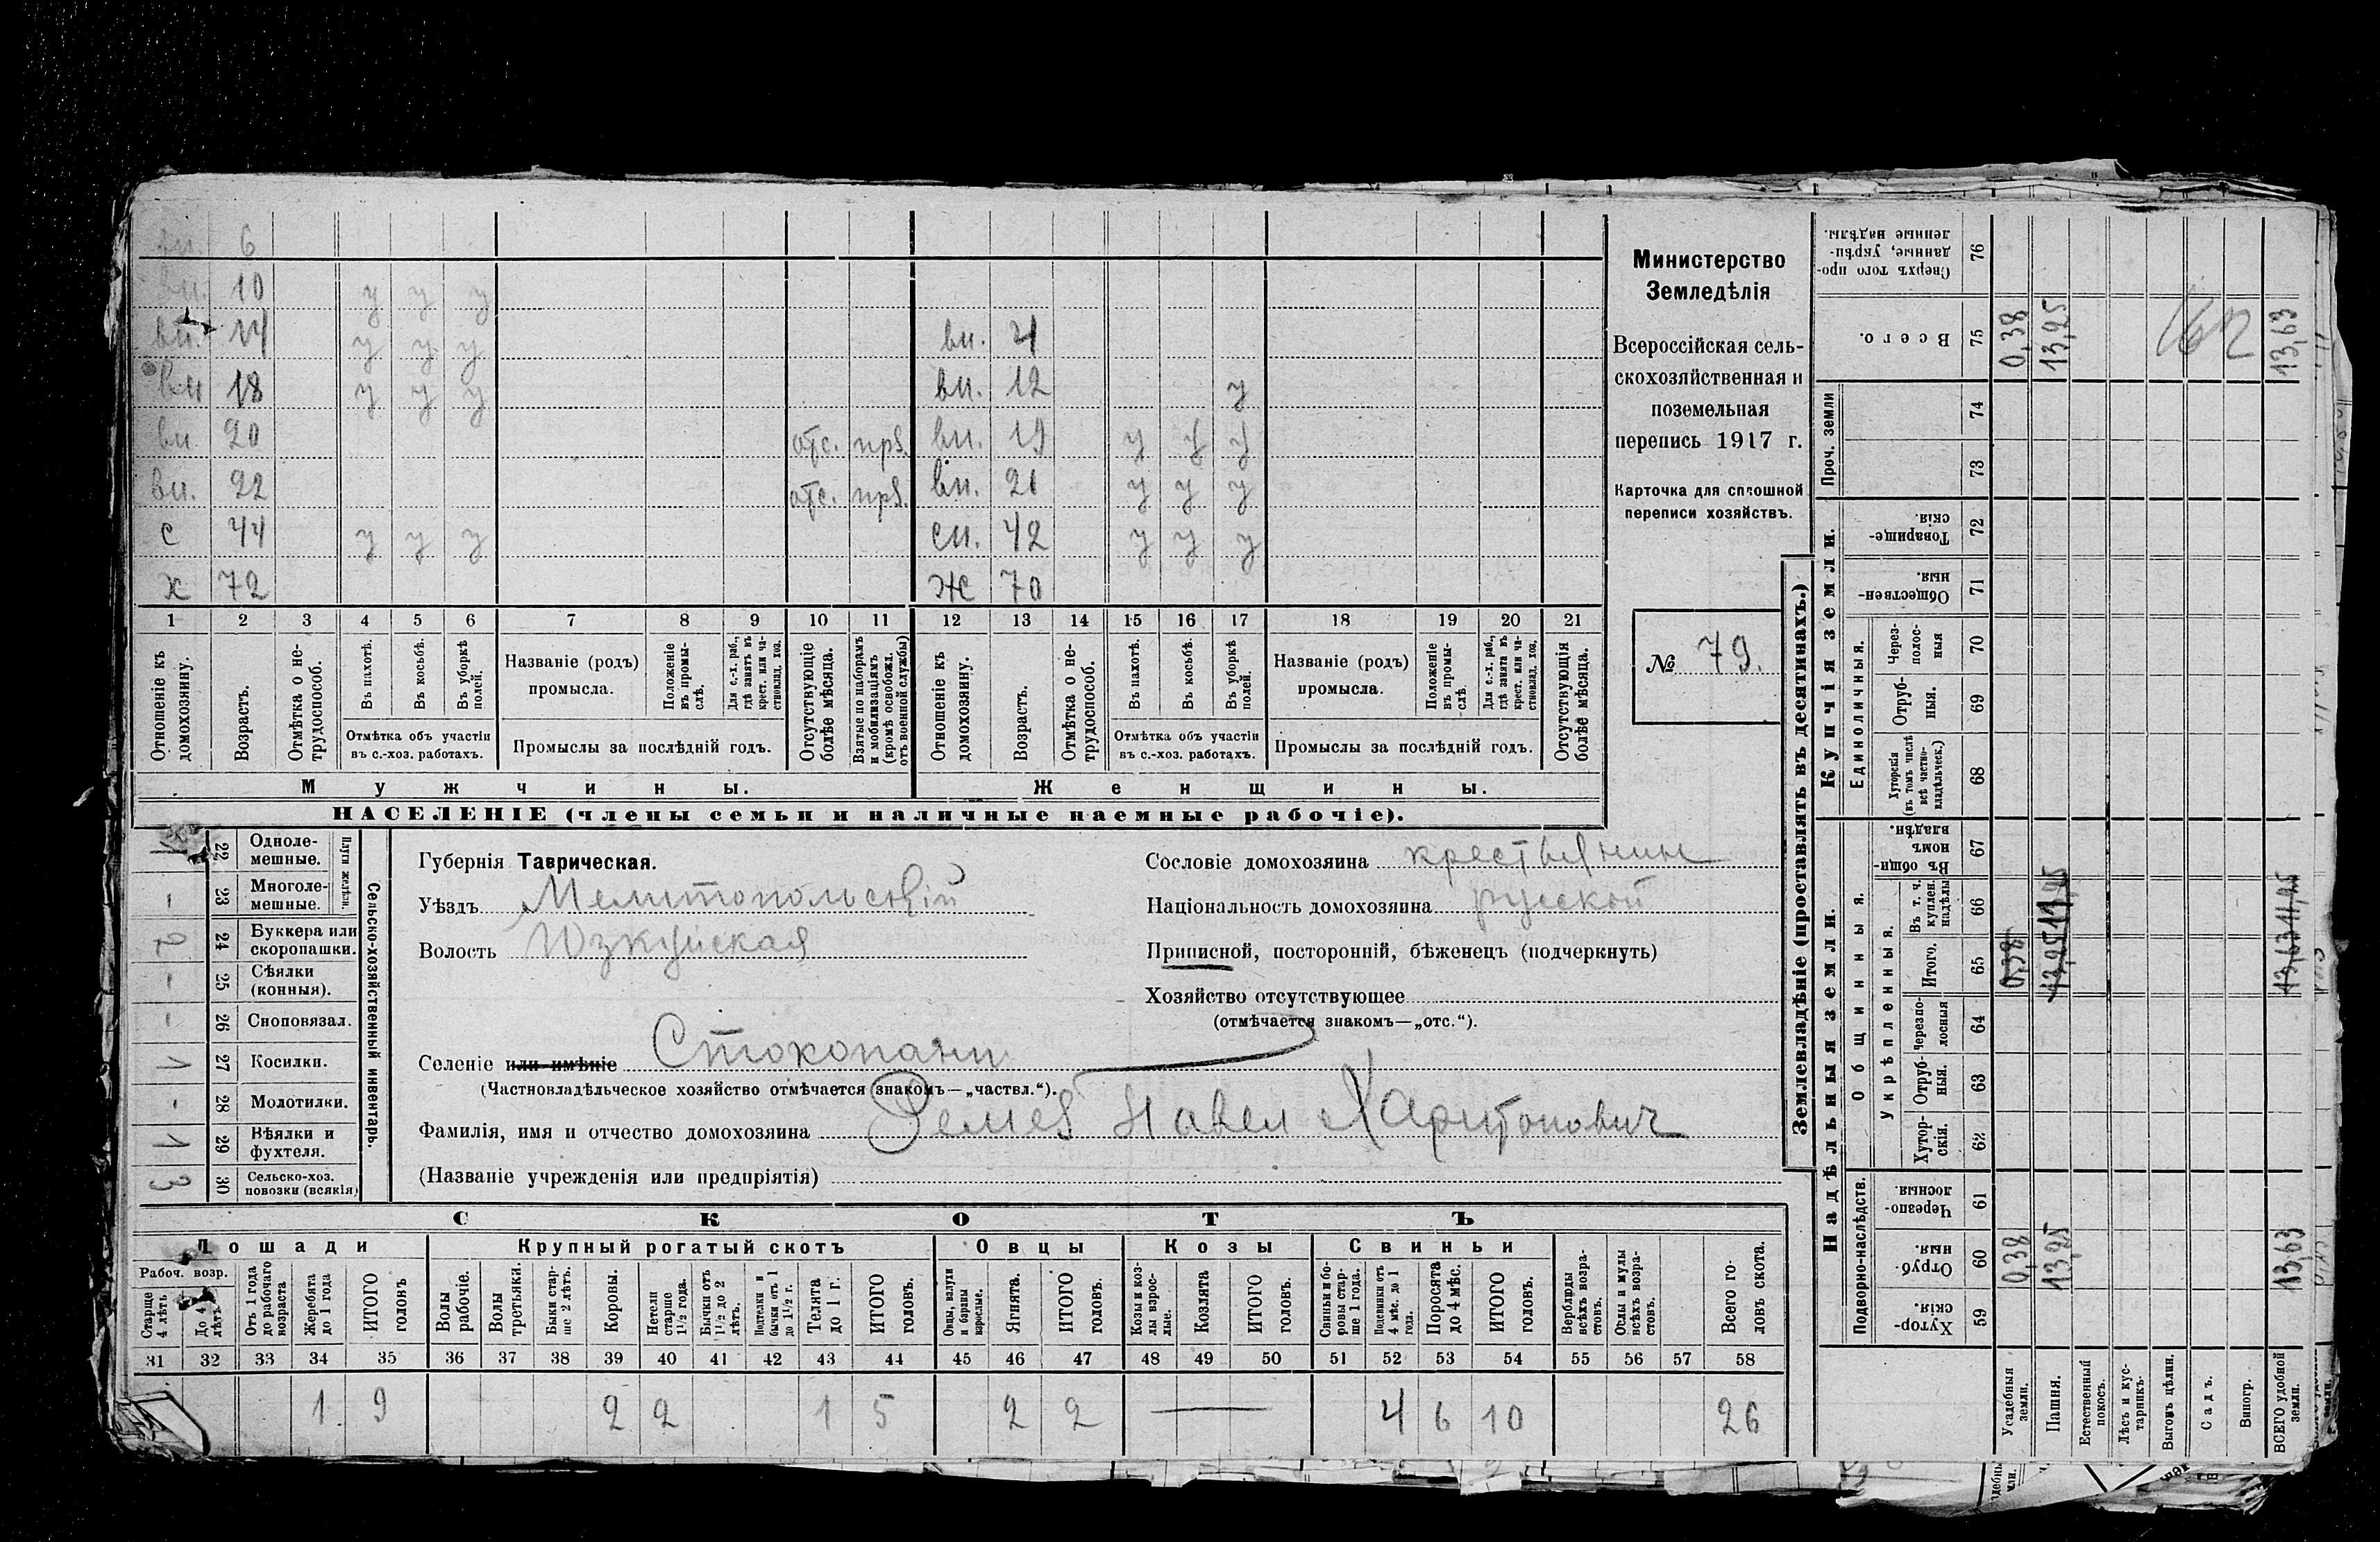 вн. 6
вн. 10 у у у
вн. 14 у у у вн. 4
вн 18 у у у вн. 12 у
вн 20 отс. прз. вн. 19 у у у
вн. 22 отс. прз. вн. 21 у у у
с 44 у у у сн. 42 у у у
х 72 ж 70
1 2 3 4 5 6 7 8 9 10 11 12 13 14 15 16 17 18 19 20 21
Отношеніе къ домохозяину.
Возрастъ.
Отмѣтка о не-трудоспособ.
Въ пахотѣ.
Въ косьбѣ.
Въ уборкѣ полей.
Отмѣтка объ участіи
въ с.-хоз. работахъ.
Названіе (родъ)
промысла.
Положеніе въ промы-слѣ.
Для с.-х. раб., гдѣ занятъ въ крест. или ча-стновлад. хоз.
Промыслы за послѣдній годъ.
Отсутствующіе болѣе мѣсяца.
Взятые по наборамъ и мобилизаціямъ (кромѣ освобожд. отъ военной службы)
Отношеніе къ домохозяину.
Возрастъ.
Отмѣтка о не-трудоспособ.
Въ пахотѣ.
Въ косьбѣ.
Въ уборкѣ полей.
Отмѣтка объ участіи
въ с.-хоз. работахъ.
Названіе (родъ)
промысла.
Положеніе въ промы-слѣ.
Для с.-х. раб., гдѣ занята въ крест. или ча-стновлад. хоз.
Промыслы за послѣдній годъ.
Отсутствующія болѣе мѣсяца.
Мужчины. Женщины.
НАСЕЛЕНІЕ (члены семьи и наличные наемные рабочіе).
Министерство
Земледѣлія
Всероссійская сель-
скохозяйственная и
поземельная
перепись 1917 г.
Карточка для сплошной
переписи хозяйствъ.
№ 79.
Плуги желѣзн.
22 Одноле-мешные.
- 23 Многоле-мешные.
2 24 Буккера или скоропашки.
- 25 Сѣялки (конныя).
- 26 Сноповязал.
1 27 Косилки.
- 28 Молотилки.
1 29 Вѣялки и фухтеля.
3 30 Сельско-хоз. повозки (всякія)
Сельско-хозяйственный инвентарь.
Губернія Таврическая.
Уѣздъ Мелитопольскій
Волость Юзкуйская
Селеніе или имѣніе Стокопани
(Частновладѣльческое хозяйство отмѣчается знакомъ—„частвл.“).
Фамилія, имя и отчество домохозяина Павел Харитонович
(Названіе учрежденія или предпріятія)
Сословіе домохозяина крестьянин
Національность домохозяина русской
Приписной, посторонній, бѣженецъ (подчеркнуть)
Хозяйство отсутствующее
(отмѣчается знакомъ—„отс.“).
СКОТЪ
Лошади Крупный рогатый скотъ Овцы Козы Свиньи
Рабоч. возр.
Старше 4 лѣтъ
До 4 лѣтъ
Отъ 1 года до рабочаго возраста
Жеребята до 1 года
ИТОГО головъ
Волы рабочіе.
Волы третьяки.
Быки стар-ше 2 лѣтъ.
Коровы.
Нетели старше 1½ года.
Бычки отъ 1½ до 2 лѣтъ.
Подтелки и бычки отъ 1 до 1½ г.
Телята до 1 г.
ИТОГО головъ.
Овцы, валухи и бараны взрослые.
Ягнята.
ИТОГО головъ.
Козы и коз-лы взрос-лые.
Козлята
ИТОГО головъ.
Свиньи и бо-ровы стар-ше 1 года.
Подсвинки отъ 4 мѣс. до 1 года.
Поросята до 4 мѣс.
ИТОГО головъ.
Верблюды всѣхъ возра-стовъ.
Ослы и мулы всѣхъ возра-стовъ.
Всего го-ловъ скота.
31 32 33 34 35 36 37 38 39 40 41 42 43 44 45 46 47 48 49 50 51 52 53 54 55 56 57 58
1 9 2 2 1 5 2 2 — 4 6 10 26
Землевладѣніе (проставлять въ десятинахъ.)
Надѣльныя земли.
Купчія земли.
Проч. земли
Подворно-наслѣдств.
Общинныя.
Укрѣпленныя.
Единоличныя.
59 Хутор-скія.
60 Отруб-ныя.
61 Черезпо-лосныя.
62 Хутор-скія.
63 Отруб-ныя.
64 Черезпо-лосныя
65 Итого.
66 Въ т. ч. куплен. надѣлы
67 Въ общин-номъ владѣн.
68 Хуторскія (въ томъ числѣ всѣ частно-владѣльческ.)
69 Отруб-ныя.
70 Через-полос-ныя
71 Обществен-ныя.
72 Товарище-скія.
73
74
75 Всего.
76 Сверхъ того про-данные, укрѣп-ленные надѣлы.
Усадебныя земли. 0,38 0,38 0,38
Пашня. 13,25 13,25 11,45 13,25
Естественный покосъ.
Лѣсъ и кус-тарникъ.
Выгонъ цѣлин.
Садъ.
Виногр.
ВСЕГО удобной земли. 13,63 13,63 11,45 13,63
162